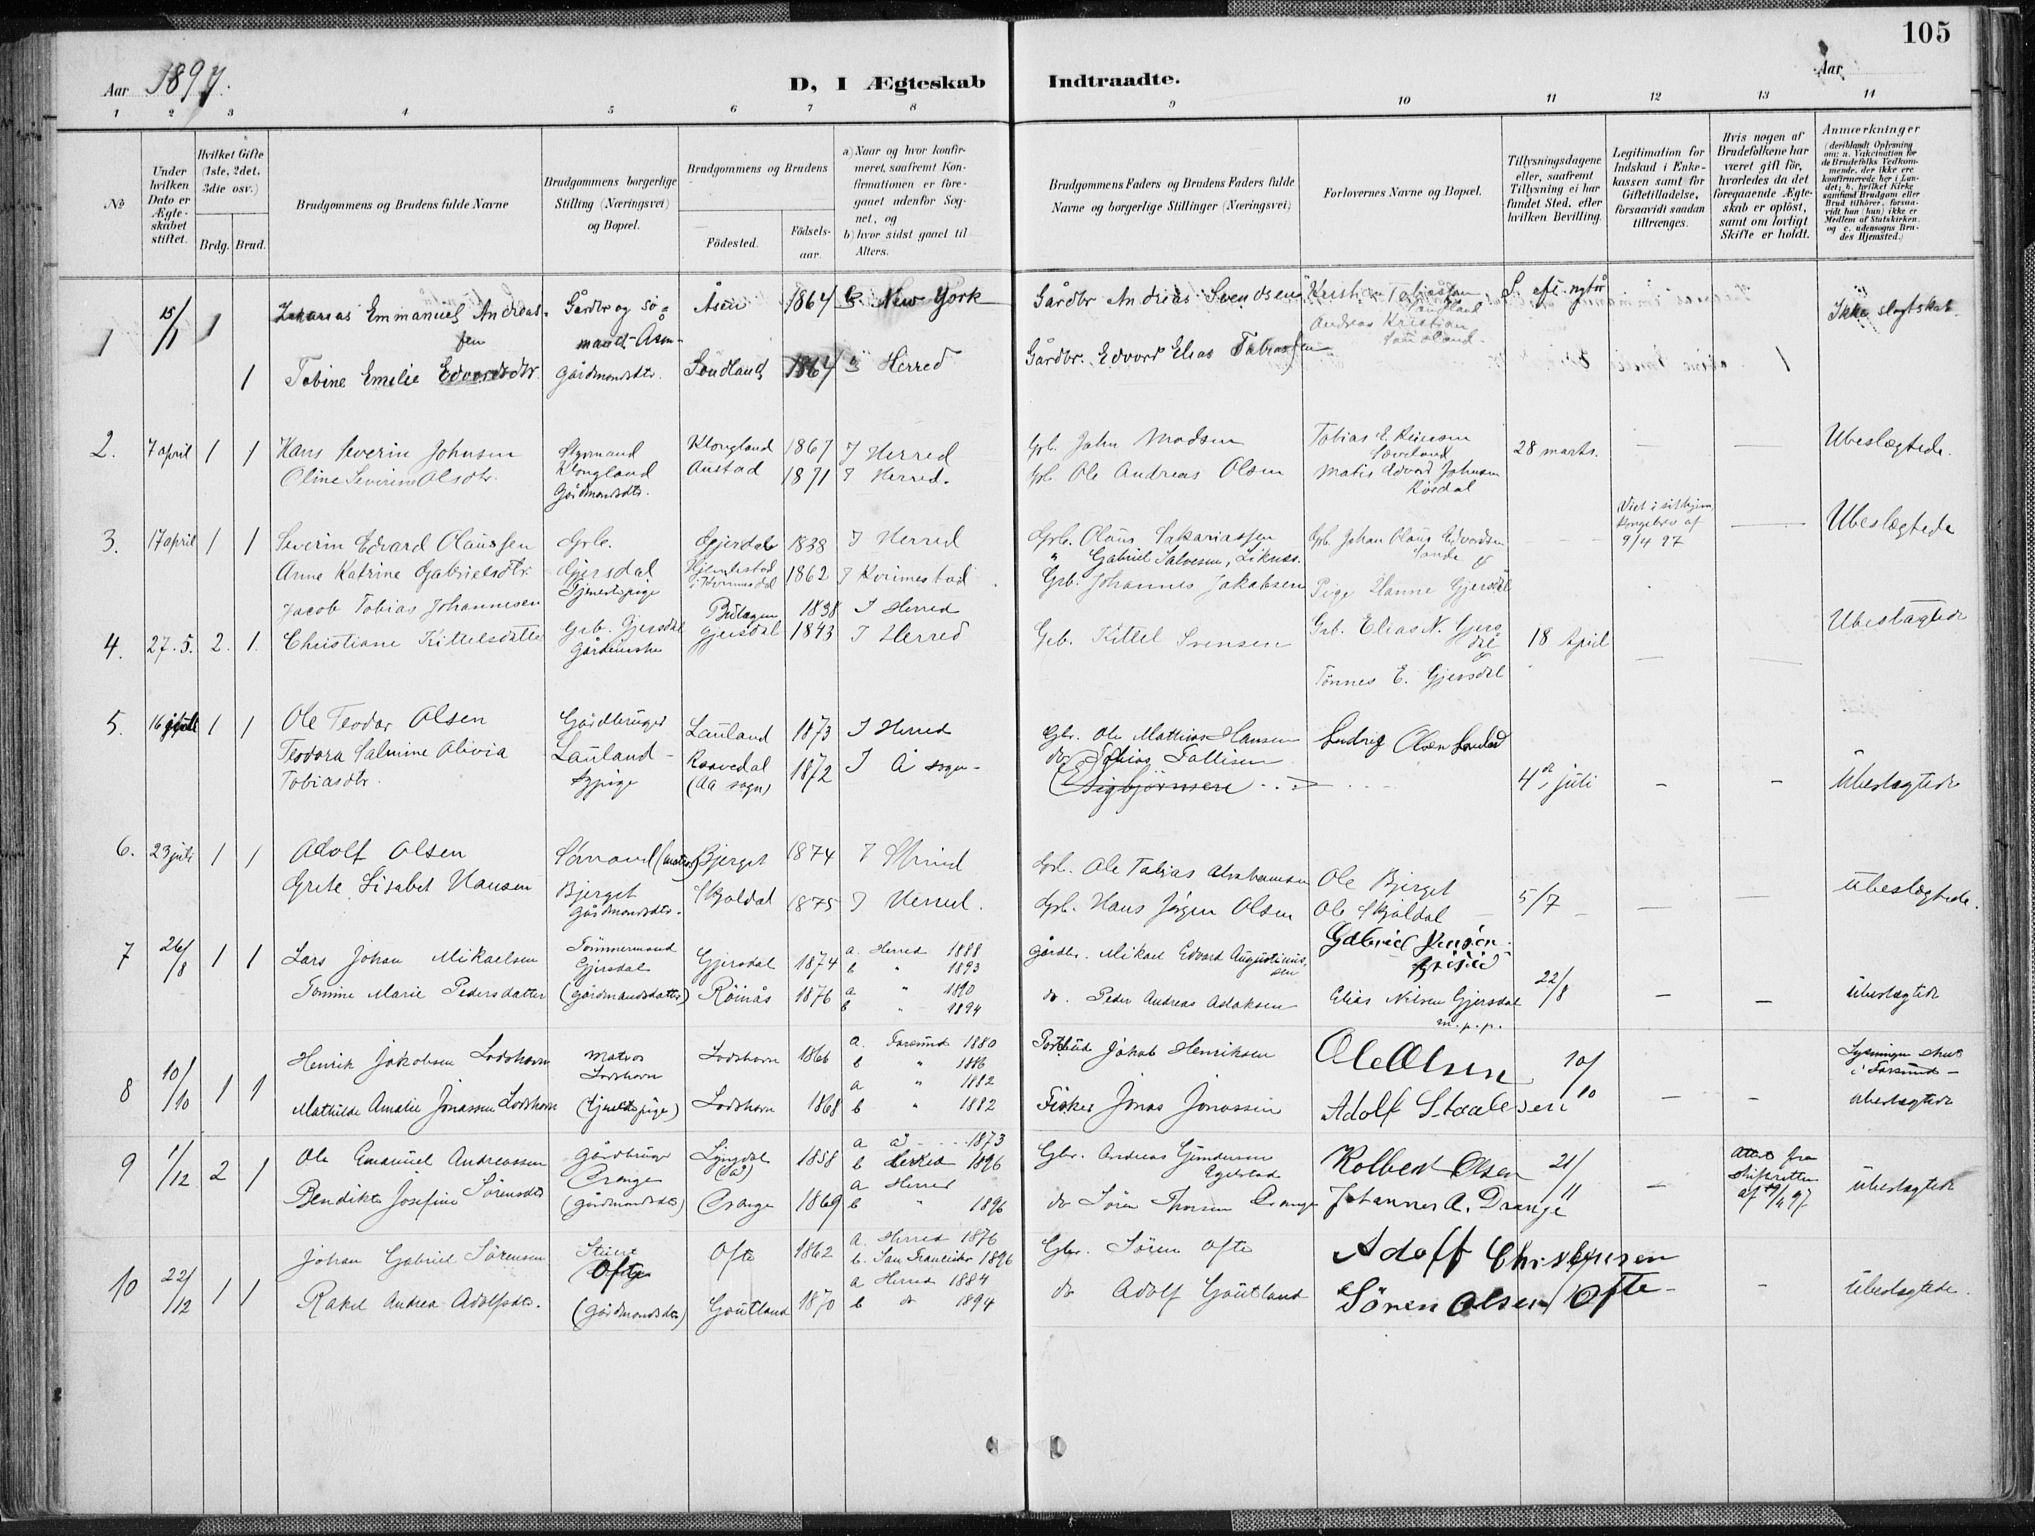 105
Aar 1897.
D, I Ægteskab Indtraadte.
Aar
1 2 3 4 5 6 7 8 9 10 11 12 13 14
No
Under hvilken Dato er Ægteskabet stiftet.
Hvilket Gifte (1ste, 2det, 3die osv.)
Brdg. Brud.
Brudgommens og Brudens fulde Navne
Brudgommens borgerlige Stilling (Næringsvei) og Bopæl.
Brudgommens og Brudens
Fødested.
Fødselsaar.
a) Naar og hvor konfirmeret, saafremt Konfirmationen er foregaaet udenfor Sognet, og
b) hvor sidst gaaet til Alters.
Brudgommens Faders og Brudens Faders fulde Navne og borgerlige Stillinger (Næringsvei)
Forlovernes Navne og Bopæl.
Tillysningsdagene eller, saafremt Tillysning ei har fundet Sted, efter hvilken Bevilling.
Legitimation for Indskud i Enkekassen samt for Giftetilladelse, forsaavidt saadan tiltrænges.
Hvis nogen af Brudefolkene har været gift før, hvorledes da det foregaaende Ægteskab er opløst, samt om lovligt Skifte er holdt.
Anmærkninger (deriblandt Oplysning om: a. Vakcination for de Brudefolks Vedkommende, der ikke ere konfirmerede her i Landet; b. hvilket Kirkesamfund Brudgom eller Brud tilhører, forsaavidt han (hun) ikke er Medlem af Statskirken, og c. udensogns Brudes Hjemsted.)
1 15/1 1 Zakarias Emmanuel Andreassen Gårdbr og Sømand Åsen Åsen 1864 b New York Gårdbr Andreas Svendsen
Andreas Kristian
S. eft. nytår Ikke slægtskab
1 Tobine Emelie Edvardsdtr. Gårdmandsdtr. Søndland 1864 I Herred Gårdbr. Edvard Elias Tobiassen
2. 7 april 1 1 Hans Severin Johnsen Styrmand Klongland Klongland 1867 I Herred Gb. John Madsen Tobias E. 28 marts. Ubeslægtede.
Oline Severine Olsdtr. Gårdmandsdtr. Austad 1871 I Herred. Gb. Ole Andreas Olsen Matis Edvard Johnsen Rørdal
3. 17 april 1 1 Severin Edvard Olaussen Grb. Gjersdal Gjersdal 1838 I Herred Grb. Olaus Sakariassen Gb. Johan Olaus Edvardsen Sande Viet i sit hjem, Kongebrev af 9/4 97 Ubeslægtede
Anne Katrine Gabrielsdtr. Tjenestepige 1862 I Kvinnestad " Gabriel Salvesen, Liknes.
Jacob Tobias Johannesen 1838 I Herred Grb. Johannes Jakobsen Pige Hanne Gjersdal
4. 27.5. 2. 1. Christiane Kittelsdatter Grb. Gjersdal Gjersdal 1843 I Herred Grb. Kittel Svensen Grb. Elias N. Gjersdal 18 April Ubeslægtede
Tønnes E. Gjersdal
5. 16 juli 1 1 Ole Teodor Olsen Gårdbruger Lauland Lauland 1873 I Herred Gbr. Ole Mathias Hansen Ludvig Olsen
Teodora Salmine Olivia Tobiasdtr. Sypige (Aa sogn) 1872 I Å sogn do Tobias Tallisen
Sigbjørnsen 4de juli Ubeslægtede
6. 23 juli 1 1 Adolf Olsen Sømand (matros) Bjerget Bjerget 1874 I Herred Grb. Ole Tobias Abrahamsen Ole Bjerget 5/7 Ubeslægtede.
Grete Lisabet Hansen Gårdmandsdtr. Skjoldal 1875 I Herred. Grb. Hans Jørgen Olsen Ole Skjoldal
7 26/8 1 1 Lars Johan Mikaelsen Tømmermand Gjersdal Gjersdal 1874 a. Herred 1888 b " 1893 Gårdbr. Mikael Edvard Augustinussen Gabriel Jensen 22/8 Ubeslægtede
Tomine Marie Pedersdatter (gårdmandsdatter) Röinås 1876 a " 1890 b " 1894 do. Peder Andreas Adaksen Elias Nilsen Gjersdal m.p.p.
8 10/10 1 1 Henrik Jakobsen Lodshavn Matros Lodshavn Lodshavn 1866 a. Farsund 1880 b " 1886 Jakob Henriksen Ole Olsen 10/10 Lysningen skeet i Farsund
Mathilde Amalie Jonassen Lodshavn (tjenestepige) Lodshavn 1868 a " 1882 b " 1882 Fisker Jonas Jonassen Adolf Staalesen Ubeslægtede
9 1/12 2 1 Ole Emanuel Andreassen Gårdbruger Drange Lyngdal (Å) 1858 a Å 1873 b Herred 1896 Gbr. Andreas Gundersen Egelstad Kolbent Olsen 21/11 Attest fra skifteretten Ubeslægtede
Bendikte Josefine Sørensdtr (gårdmandsdtr) Drange 1869 a Herred b " 1896 do Søren Thorsen Drange Johannes A. Drange
10 22/12 1 1 Johan Gabriel Sørensen Ofte Ofte 1862 a. Herred 1876 b. San Francisko 1896 Gbr. Søren Ofte Adolf Christensen
Rakel Andrea Adolfsdtr. (Gårdmandsdtr) Goutland 1870 a Herred 1884 b do 1894 do Adolf Goutland Søren Olsen Ofte Ubeslægtede.